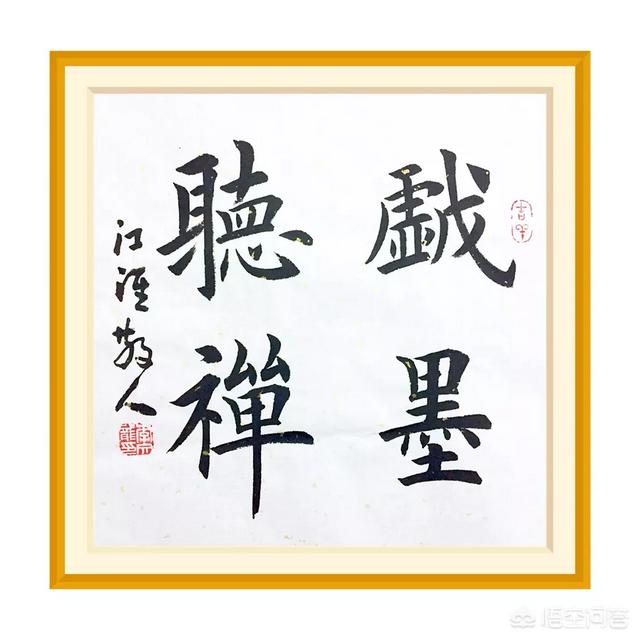 戯墨
聽禪
江淮散人
悟空问答